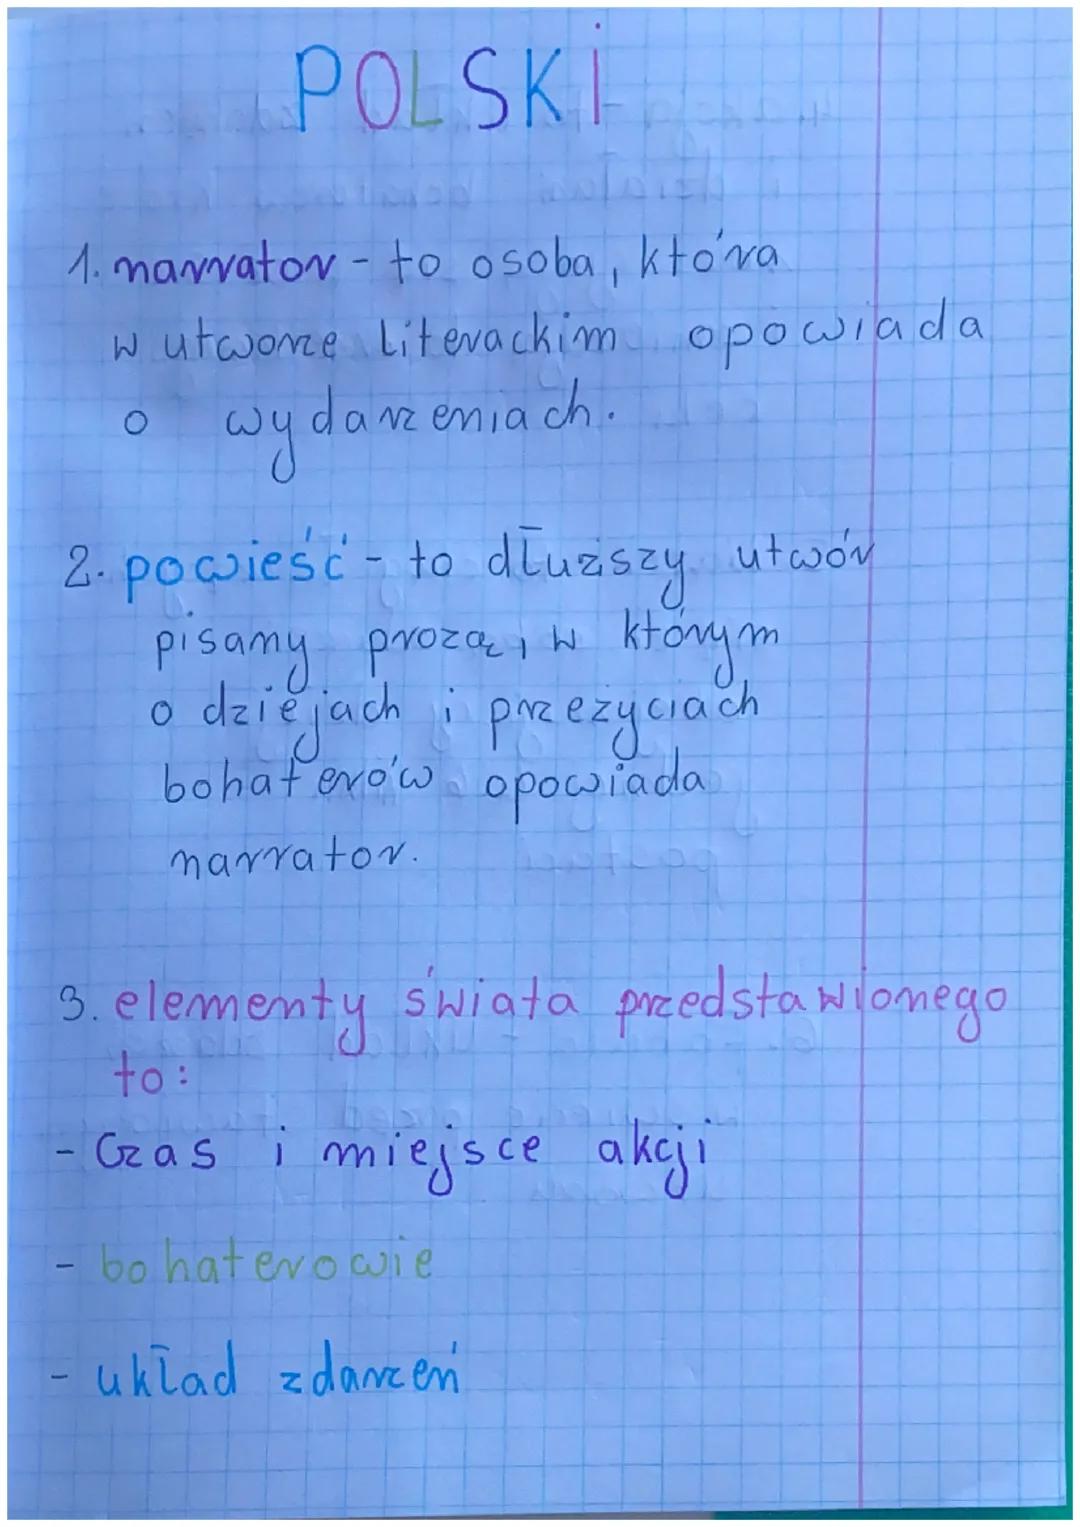 POLSKI
1. narrator - to osoba, która
w utworze literackim opowiada
o wydarzeniach.
2. powieść - to dłuższy utwór
pisany prozą, w którym
o dziejach i przeżyciach
bohaterów opowiada
narrator.
3. elementy świata przedstawionego
to:
- Czas i miejsce akcji
- bohaterowie
- układ zdarzeń